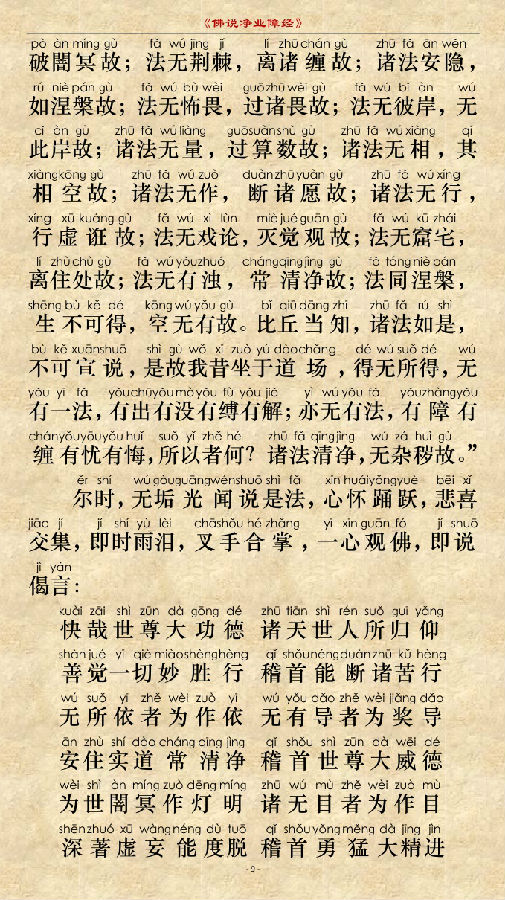 《佛说净业障经》
pò àn míng gù fǎ wú jīng jí lí zhū chán gù zhū fǎ ān wěn
破闇冥故；法无荆棘，离诸缠故；诸法安隐，
rú niè pán gù fǎ wú bù wèi guò zhū wèi gù fǎ wú bǐ àn wú
如涅槃故；法无怖畏，过诸畏故；法无彼岸，无
cǐ àn gù zhū fǎ wú liàng guò suàn shù gù zhū fǎ wú xiàng qí
此岸故；诸法无量，过算数故；诸法无相，其
xiàng kōng gù zhū fǎ wú zuò duàn zhū yuàn gù zhū fǎ wú xíng
相空故；诸法无作，断诸愿故；诸法无行，
xíng xū kuáng gù fǎ wú xì lùn miè jué guān gù fǎ wú kū zhái
行虚诳故；法无戏论，灭觉观故；法无窟宅，
lí zhù chù gù fǎ wú yǒu zhuó cháng qīng jìng gù fǎ tóng niè pán
离住处故；法无有浊，常清净故；法同涅槃，
shēng bù kě dé kōng wú yǒu gù bǐ qiū dāng zhī zhū fǎ rú shì
生不可得，空无有故。比丘当知，诸法如是，
bù kě xuān shuō shì gù wǒ xī zuò yú dào chǎng dé wú suǒ dé wú
不可宣说，是故我昔坐于道场，得无所得，无
yǒu yī fǎ yǒu chū yǒu mò yǒu fù yǒu jiě yì wú yǒu fǎ yǒu zhàng yǒu
有一法，有出有没有缚有解；亦无有法，有障有
chán yǒu yōu yǒu huǐ suǒ yǐ zhě hé zhū fǎ qīng jìng wú zá huì gù
缠有忧有悔，所以者何？诸法清净，无杂秽故。”
ěr shí wú gòu guāng wén shuō shì fǎ xīn huái yǒng yuè bēi xǐ
尔时，无垢光闻说是法，心怀踊跃，悲喜
jiāo jí jí shí yù lèi chā shǒu hé zhǎng yī xīn guān fó jí shuō
交集，即时雨泪，叉手合掌，一心观佛，即说
jì yán
偈言：
kuài zāi shì zūn dà gōng dé zhū tiān shì rén suǒ guī yǎng
快哉世尊大功德 诸天世人所归仰
shàn jué yī qiè miào shèng hèng qǐ shǒu néng duàn zhū kǔ hèng
善觉一切妙胜行 稽首能断诸苦行
wú suǒ yī zhě wèi zuò yī wú yǒu dǎo zhě wèi jiǎng dǎo
无所依者为作依 无有导者为奖导
ān zhù shí dào cháng qīng jìng qǐ shǒu shì zūn dà wēi dé
安住实道常清净 稽首世尊大威德
wèi shì àn míng zuò dēng míng zhū wú mù zhě wèi zuò mù
为世闇冥作灯明 诸无目者为作目
shēn zhuó xū wàng néng dù tuō qǐ shǒu yǒng měng dà jīng jìn
深著虚妄能度脱 稽首勇猛大精进